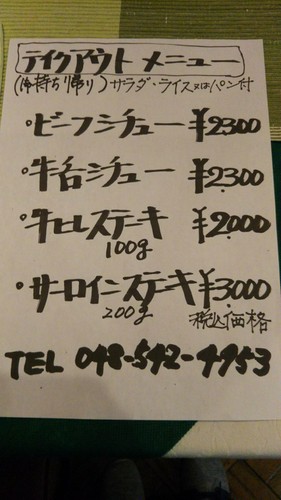 テイクアウト メニュー
(お持ち帰り) サラダ・ライス又はパン付
・ビーフシチュー ¥2300
・牛舌シチュー ¥2300
・牛ヒレステーキ ¥2000
100g
・サーロインステーキ ¥3000
200g 税込価格
TEL 048-542-4953